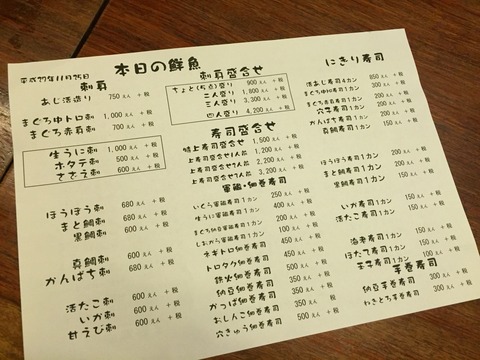 平成27年11月25日
本日の鮮魚
刺身
あじ活造り 750 えん + 税
まぐろ中トロ刺 1,000 えん + 税
まぐろ赤身刺 700 えん + 税
生うに刺 1,000 えん + 税
ホタテ刺 500 えん + 税
さざえ刺 600 えん + 税
ほうぼう刺 680 えん + 税
まと鯛刺 680 えん + 税
黒鯛刺 600 えん + 税
真鯛刺 600 えん + 税
かんぱち刺 680 えん + 税
活たこ刺 600 えん + 税
いか刺 600 えん + 税
甘えび刺 600 えん + 税
刺身盛合せ
ちょと(5点)盛り 900 えん + 税
二人盛り 1,800 えん + 税
三人盛り 3,300 えん + 税
四人盛り 4,200 えん + 税
寿司盛合せ
特上寿司盛合せ 1,500 えん + 税
上寿司盛合せ1人前 1,200 えん + 税
上寿司盛合せ2人前 2,200 えん + 税
上寿司盛合せ3人前 3,200 えん + 税
軍艦・細巻寿司
いくら軍艦寿司1カン 250 えん + 税
生うに軍艦寿司1カン 400 えん + 税
まぐろ軍艦寿司1カン 200 えん + 税
しおから軍艦寿司1カン 100 えん + 税
ネギトロ細巻寿司 450 えん + 税
トロタク細巻寿司 450 えん + 税
鉄火細巻寿司 500 えん + 税
納豆細巻寿司 350 えん + 税
かっぱ細巻寿司 300 えん + 税
おしんこ細巻寿司 300 えん + 税
穴きゅう細巻寿司 500 えん + 税
にぎり寿司
活あじ寿司4カン 850 えん + 税
まぐろ中トロ寿司1カン 300 えん + 税
まぐろ赤身寿司1カン 200 えん + 税
穴子寿司1カン 200 えん + 税
かんぱち寿司1カン 150 えん + 税
真鯛寿司1カン 150 えん + 税
ほうぼう寿司1カン 200 えん + 税
まと鯛寿司1カン 200 えん + 税
黒鯛寿司1カン 150 えん + 税
いか寿司1カン 150 えん + 税
活たこ寿司1カン 150 えん + 税
海老寿司1カン 150 えん + 税
ほたて寿司1カン 150 えん + 税
玉子寿司1カン 100 えん + 税
手巻寿司
納豆手巻寿司 300 えん + 税
ねぎとろ手巻寿司 300 えん + 税